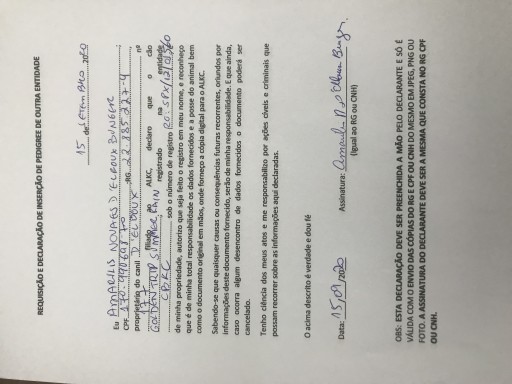 REQUISIÇÃO E DECLARAÇÃO DE INSERÇÃO DE PEDIGREE DE OUTRA ENTIDADE
15 de SETEMBRO 2020
Eu AMARILIS NOVAES D'ELBOUX BUNGER
CPF RG 22.785.227-4
proprietário do canil D'ELBOUX nº
177 filiado ao ALKC, declaro que o cão
GOLDEN TRIP SUMMER RAIN registrado na entidade
CBKC sob o número de registro RG SPX/
de minha propriedade, autorizo que seja feito o registro em meu nome, e reconheço
que é de minha total responsabilidade os dados fornecidos e a posse do animal bem
como o documento original em mãos, onde forneço a cópia digital para o ALKC.
Sabendo-se que quaisquer causas ou consequências futuras recorrentes, oriundos por
informações deste documento fornecido, serão de minha responsabilidade. E que ainda,
caso ocorra algum desencontro de dados fornecidos o documento poderá ser
cancelado.
Tenho ciência dos meus atos e me responsabilizo por ações cíveis e criminais que
possam recorrer sobre as informações aqui declaradas.
O acima descrito é verdade e dou fé
Data: 15/09/2020 Assinatura:
(Igual ao RG ou CNH)
OBS: ESTA DECLARAÇÃO DEVE SER PREENCHIDA A MÃO PELO DECLARANTE E SÓ É
VÁLIDA COM O ENVIO DAS CÓPIAS DO RG E CPF OU CNH DO MESMO EM JPEG, PNG OU
FOTO. A ASSINATURA DO DECLARANTE DEVE SER A MESMA QUE CONSTA NO RG CPF
OU CNH.